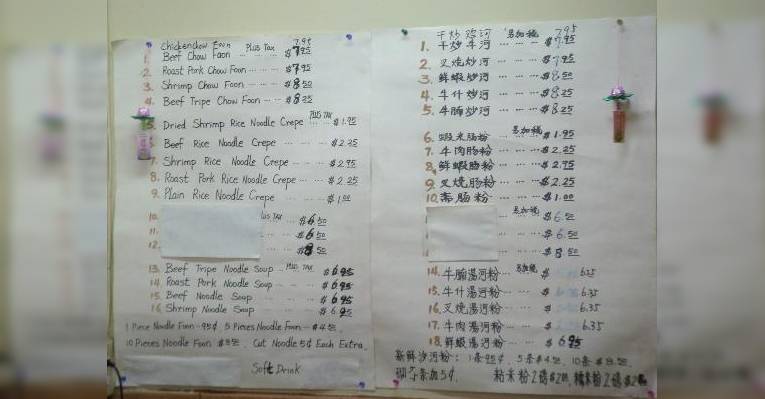 Chickendow Foon 7.95
1. Beef Chow Foon PLUS TAX $7.95
2. Roast Pork Chow Foon $7.95
3. Shrimp Chow Foon $8.50
4. Beef Tripe Chow Foon $8.25
5. Dried Shrimp Rice Noodle Crepe PLUS TAX $1.95
6. Beef Rice Noodle Crepe $2.25
7. Shrimp Rice Noodle Crepe $2.95
8. Roast Pork Rice Noodle Crepe $2.25
9. Plain Rice Noodle Crepe $1.00
10. TAX $6.50
11. $6.50
12. $8.50
13. Beef Tripe Noodle Soup PLUS TAX $6.95
14. Roast Pork Noodle Soup $6.95
15. Beef Noodle Soup $6.95
16. Shrimp Noodle Soup $6.95
1 Piece Noodle Foon 95¢ 5 Pieces Noodle Foon $4.50.
10 Pieces Noodle Foon $8.50. Cut Noodle 5¢ Each Extra.
Soft Drink
干炒 河 另加税 7.95
1. 干炒牛河 $7.95
2. 叉燒炒河 $7.95
3. 鮮蝦炒河 $8.50
4. 牛什炒河 $8.25
5. 牛腩炒河 $8.25
6. 蝦米肠粉 另加税 $1.95
7. 牛肉肠粉 $2.25
8. 鮮蝦肠粉 $2.95
9. 叉燒肠粉 $2.25
10. 斋肠粉 $1.00
另加税 $6.50
$6.50
$8.50
14. 牛腩湯河粉 另加税 $ 6.35
15. 牛什湯河粉 $ 6.35
16. 叉燒湯河粉 $ 6.35
17. 牛肉湯河粉 $ 6.35
18. 鮮蝦湯河粉 $6.95
新鮮沙河粉: 1条95¢. 5条$4.50. 10条$8.50.
条加5¢. 粘米粉2磅$2. 糯米粉2磅$2.